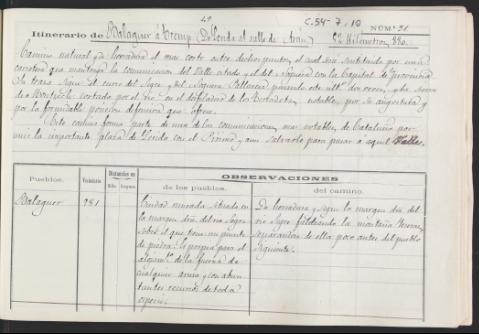 49
C.54-7, 10
NÚM.º 31
Itinerario de Balaguer á Tremp (De Lérida al valle de Arán)
Camino natural y de herradura el mas corto entre dichos puntos, el cual será sustituido por una
carretera que mantenga la comunicacion del Valle citado y el del Noguera con la Capital de provincia
de Montsech cortado por el rio en el desfiladero de los Terradets, notables por su angostura y
por la formidable posicion defensiva que ofrece.
Este camino forma parte de una de las comunicaciones mas notables de Cataluña por
unir la importante plaza de Lérida con el Pirineo y aun salvarlo para pasar á aquel Valle.
Pueblos.
Vecindario
Distancias en
Kilo
leguas
OBSERVACIONES
de los pueblos.
del camino.
Balaguer
981
Ciudad murada situada en
la margen dra. del rio Segre
sobre el que tiene un puente
de piedra. Es propia para el
alojamto. de la fuerza de
cualquier arma y con abun
tantes recursos de toda
especie.
De herradura y sigue la margen dra. del
rio Segre faldeando la montaña
separandose de ella poco antes del pueblo
siguiente.